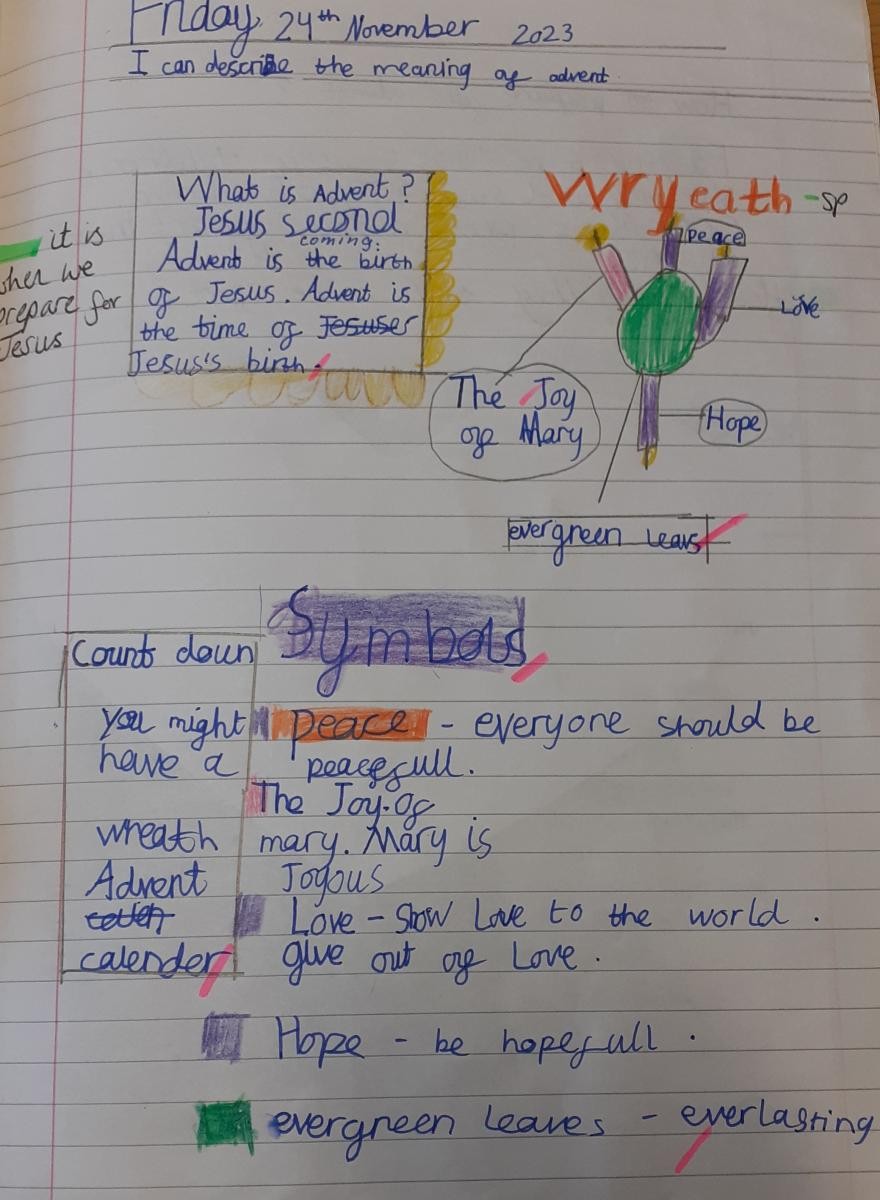 Friday 24th November 2023
I can describe the meaning of advent.
What is Advent?
Jesus second
coming.
Advent is the birth
of Jesus. Advent is
the time of Jesuser
Jesus's birth.
it is
when we
prepare for
Jesus
Wryeath - sp
Peace
Love
The Joy
of Mary
Hope
evergreen leavs
Symbols
Count down
you might
have a
wheath
Advent
calender
peace - everyone should be
peacefull.
The Joy of
mary. Mary is
Joyous
Love - Show Love to the world.
give out of Love.
Hope - be hopefull.
evergreen leaves - everlasting